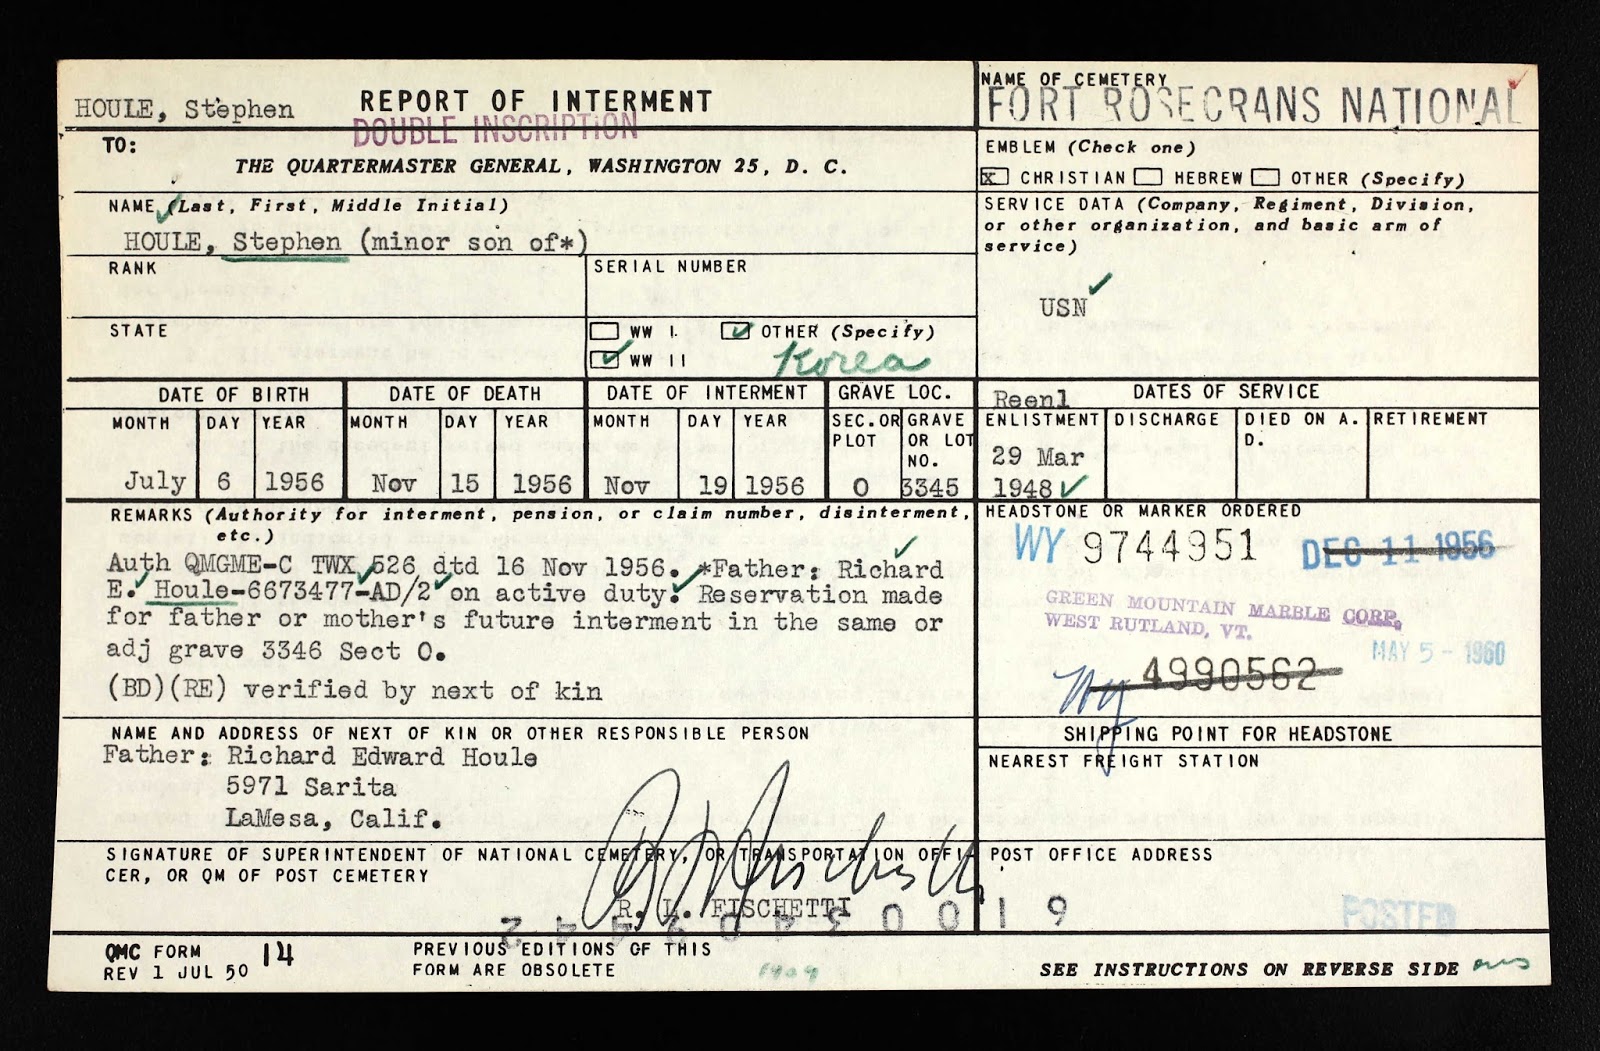 HOULE, Stephen
REPORT OF INTERMENT
DOUBLE INSCRIPTION
TO:
THE QUARTERMASTER GENERAL, WASHINGTON 25, D. C.
NAME (Last, First, Middle Initial)
HOULE, Stephen (minor son of*)
RANK
SERIAL NUMBER
STATE
WW I.
OTHER (Specify)
WW II
Korea
NAME OF CEMETERY
FORT ROSECRANS NATIONAL
EMBLEM (Check one)
x CHRISTIAN HEBREW OTHER (Specify)
SERVICE DATA (Company, Regiment, Division,
or other organization, and basic arm of
service)
USN
DATE OF BIRTH
MONTH DAY YEAR
July 6 1956
DATE OF DEATH
MONTH DAY YEAR
Nov 15 1956
DATE OF INTERMENT
MONTH DAY YEAR
Nov 19 1956
GRAVE LOC.
SEC. OR
PLOT
O
GRAVE
OR LOT
NO.
3345
DATES OF SERVICE
Reenl
ENLISTMENT
29 Mar
1948
DISCHARGE
DIED ON A.
D.
RETIREMENT
REMARKS (Authority for interment, pension, or claim number, disinterment,
etc.)
Auth QMGME-C TWX 526 dtd 16 Nov 1956. *Father: Richard
E. Houle-6673477-AD/2 on active duty. Reservation made
for father or mother's future interment in the same or
adj grave 3346 Sect O.
(BD)(RE) verified by next of kin
HEADSTONE OR MARKER ORDERED
WY 9744951 DEC 11 1956
GREEN MOUNTAIN MARBLE CORP.
WEST RUTLAND, VT.
MAY 5 - 1960
Wy 4990562
NAME AND ADDRESS OF NEXT OF KIN OR OTHER RESPONSIBLE PERSON
Father: Richard Edward Houle
5971 Sarita
LaMesa, Calif.
SHIPPING POINT FOR HEADSTONE
NEAREST FREIGHT STATION
SIGNATURE OF SUPERINTENDENT OF NATIONAL CEMETERY, OR TRANSPORTATION OFFI-
CER, OR QM OF POST CEMETERY
R. L. FISCHETTI
POST OFFICE ADDRESS
POSTED
QMC FORM
REV 1 JUL 50
14
PREVIOUS EDITIONS OF THIS
FORM ARE OBSOLETE
SEE INSTRUCTIONS ON REVERSE SIDE